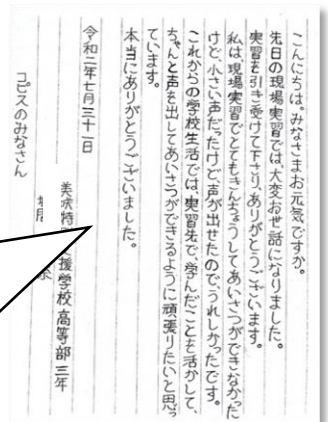 こんにちは。みなさまお元気ですか。
先日の現場実習では、大変お世話になりました。
実習を引き受けて下さり、ありがとうございます。
私は、現場実習でとてもきんちょうしてあいさつができなかった
けど、小さい声だったけど、声が出せたので、うれしかったです。
これからの学校生活では、実習先で、学んだことを活かして、
ちゃんと声を出してあいさつができるように頑張りたいと思っ
ています。
本当にありがとうございました。
令和二年七月三十一日
美咲特 援学校高等部三年
コピスのみなさん